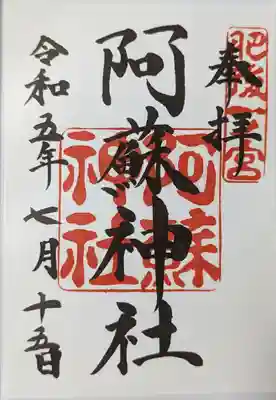 奉拝
肥後一宮
阿蘇神社
阿蘇
神社
令和五年七月十五日